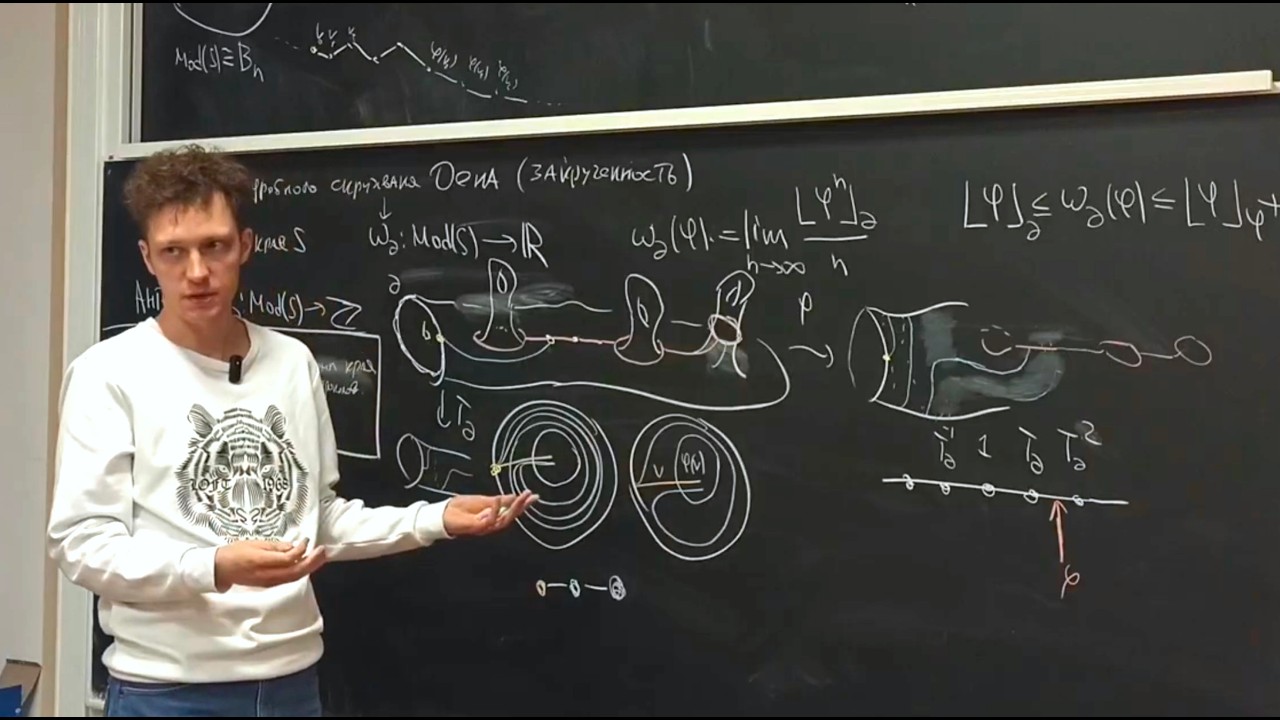 Mod(S)≅Bₙ
φ(v₀) φ(v₁) φ(v₂)
дробного скручивания Дена (закрученность)
края S
↓
ω_∂: Mod(S)→ℝ
ω_∂(φ) := lim_{n→∞} ⌊φⁿ⌋_∂ / n
⌊φ⌋_∂ ≤ ω_∂(φ) ≤ ⌊φ⌋_∂ +
: Mod(S)→ℤ
∂
b
ρ
края
↓ T_∂
v
φ(v)
T_∂⁻¹ 1 T_∂ T_∂²
φ
LOFT 1968